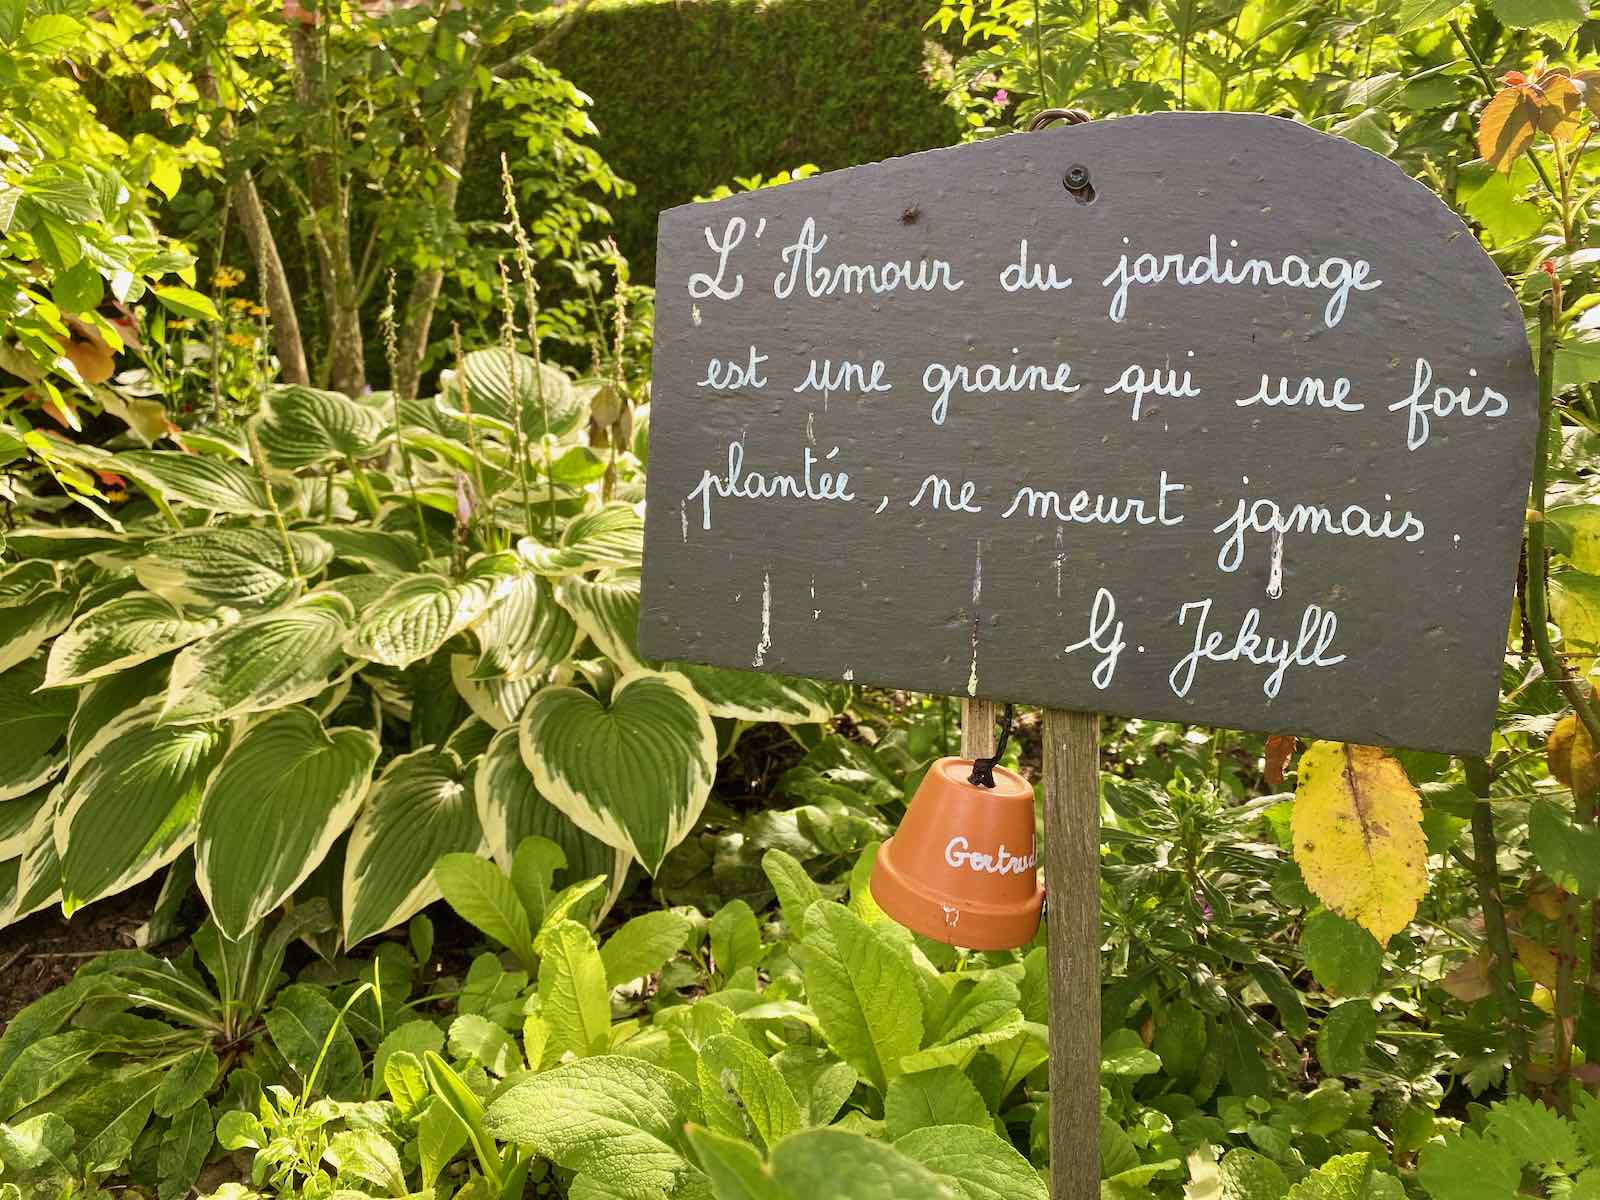 L'Amour du jardinage
est une graine qui une fois
plantée, ne meurt jamais.
G. Jekyll
Gertrud